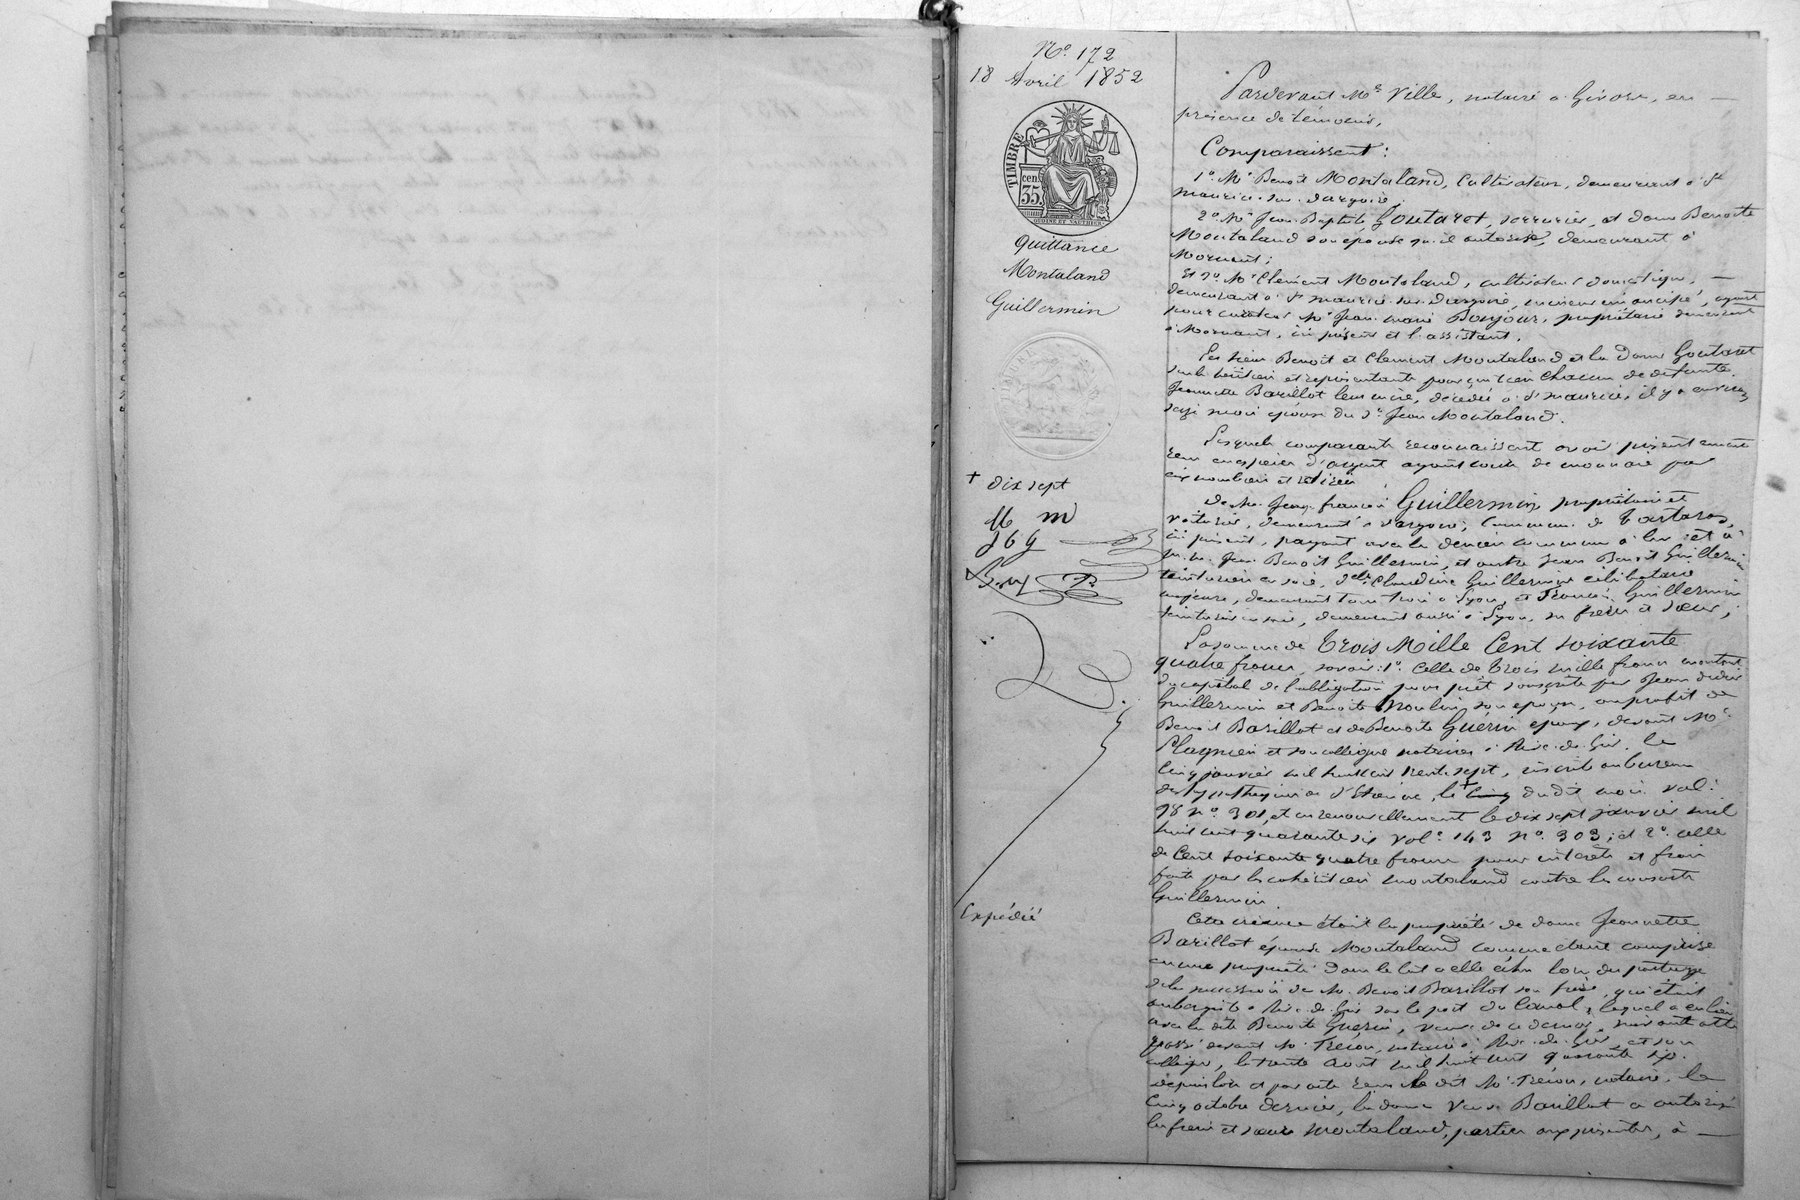 N.o 172
18 Avril 1852
TIMBRE
cen.
35.
Quittance
Montaland
Guillermin
+ dix sept
M m
J6G
Expédié
Pardevant Me Ville, notaire à Givors, en
présence de témoins,
Comparaissent :
1o Mr Benoit Montaland, Cultivateur, demeurant à St
Maurice-sur-Dargoire ;
2o Mr Jean Baptiste Goutarot, serrurier, et dame Benoite
Montaland son épouse qu'il autorise, demeurant à
Mornant ;
Et 3o Mr Clément Montaland, cultivateur domestique,
demeurant à St Maurice-sur-Dargoire, mineur émancipé, ayant
pour curateur Mr Jean Marie Bonjour, propriétaire demeurant
à Mornant, ici présent et l'assistant.
Les sieurs Benoit et Clément Montaland et la Dame Goutarot
sont héritiers et représentants pour un tiers chacun de défunte
Jeannette Barillot leur mère, décédée à St Maurice, il y a environ
seize mois épouse du Sr Jean Montaland.
Lesquels comparants reconnaissent avoir présentement
reçu en espèces d'argent ayant cours de monnaie par
eux nombrées et retirées
De Mr Jean François Guillermin propriétaire et
voiturier, demeurant à Dargoire, Commune de Tartaras,
ici présent, payant avec les deniers communs à lui et à
M. M. Jean Benoit Guillermin, et autre Jean Benoit Guillermin
teinturiers en soie, Delle Claudine Guillermin célibataire
majeure, demeurant tous trois à Lyon, et François Guillermin
teinturier en soie, demeurant aussi à Lyon, ses frères et sœur ;
La somme de Trois Mille Cent soixante
quatre francs, savoir : 1o Celle de trois mille francs montant
du capital de l'obligation pour prêt souscrite par Jean Didier
Guillermin et Benoite Moulin son épouse, au profit de
Benoit Barillot et de Benoite Guérin époux, devant Me
Plagnieu et son collègue notaires à Rive-de-Gier, le
Cinq janvier mil huit cent trente sept, inscrite au bureau
des hypothèques de St Etienne, le + Cinq dudit mois vol :
98 no 301, et en renouvellement le dix sept janvier mil
huit cent quarante six vole 143 no 303 ; et 2o celle
de Cent soixante quatre francs pour intérêts et frais
faits par les cohéritiers Montaland contre les consorts
Guillermin.
Cette créance était la propriété de dame Jeannette
Barillot épouse Montaland comme étant comprise
en une propriété dans le lot à elle échu lors du partage
de la succession de Mr Benoit Barillot son frère, qui était
aubergiste à Rive-de-Gier sur le port du Canal, lequel a eu lieu
avec la dite Benoite Guérin, veuve de ce dernier, suivant acte
passé devant Me Trénon, notaire à Rive-de-Gier, et son
collègue, le trente août mil huit cent quarante six.
Depuis lors et par acte reçu le dit Me Trénon, notaire, le
Cinq octobre dernier, la dame Veuve Barillot a autorisé
les frères et sœur Montaland, parties aux présentes, à